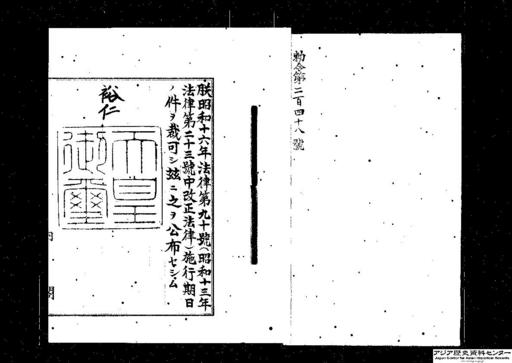 勅令第二百四十八號
朕昭和十六年法律第九十號(昭和十三年
法律第二十三號中改正法律)施行期日
ノ件ヲ裁可シ茲ニ之ヲ公布セシム
裕仁
天皇
御璽
内閣
アジア歴史資料センター
Japan Center for Asian Historical Records